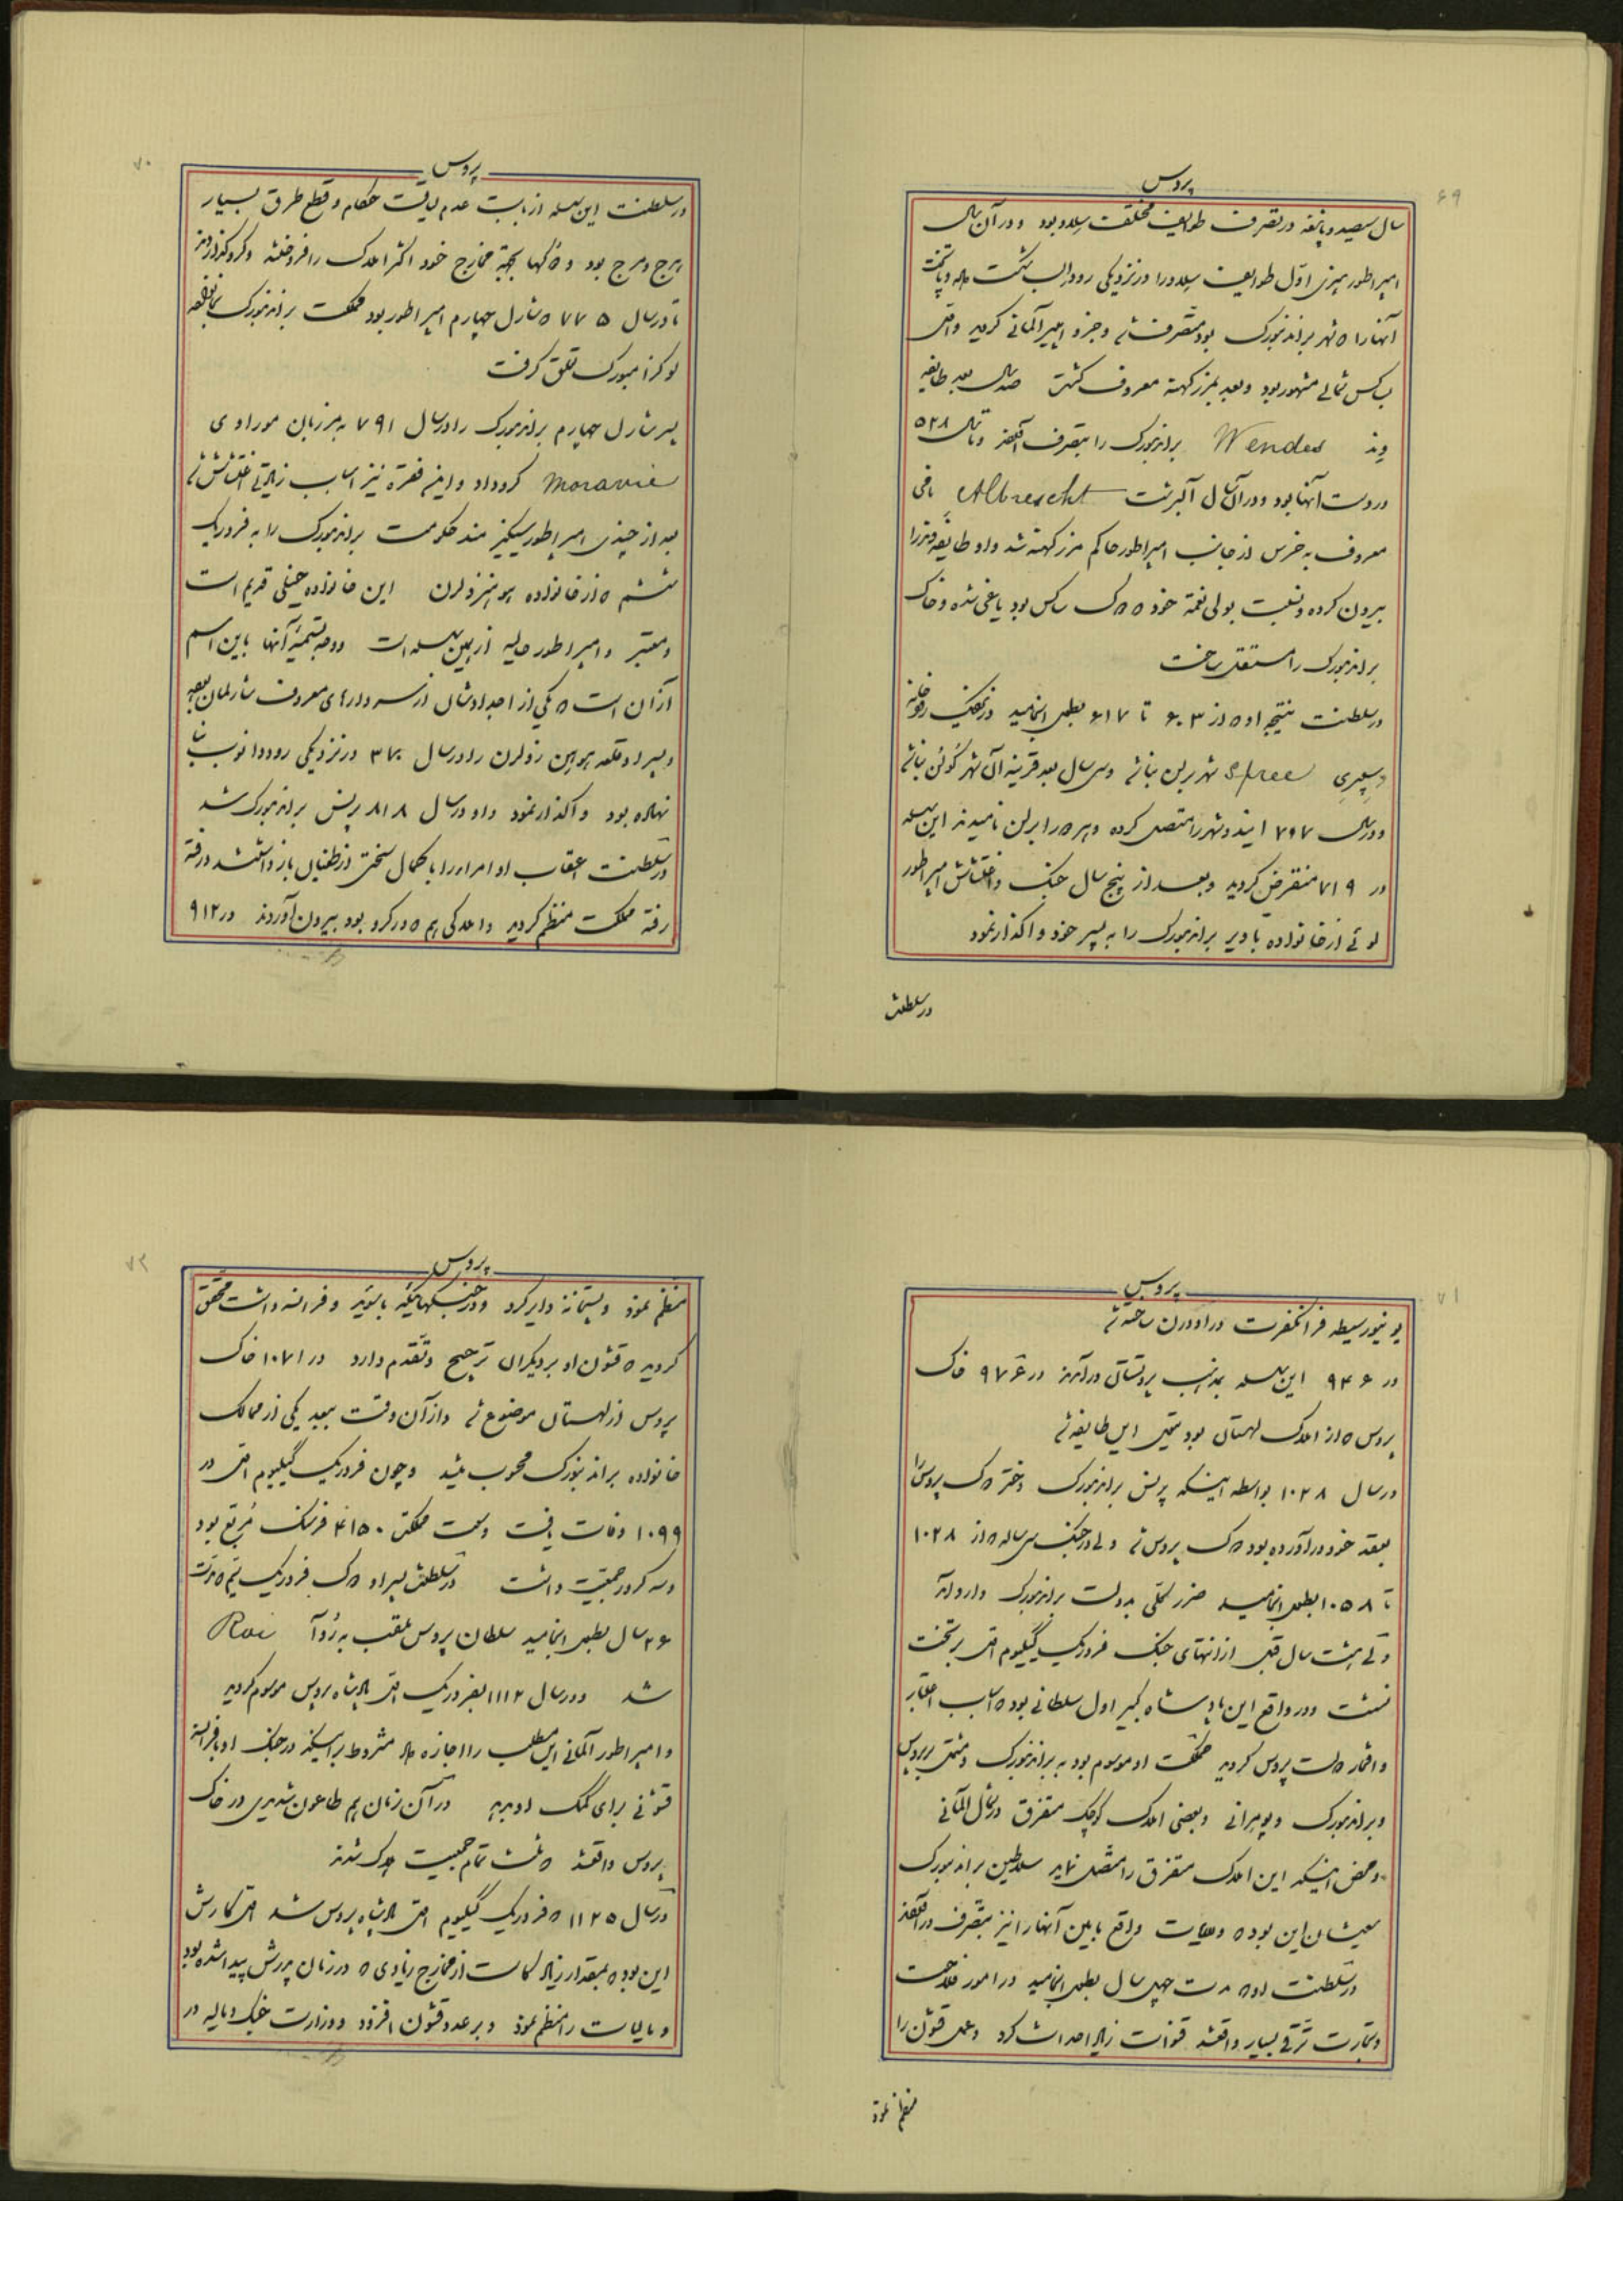 ۶۹
پروس
سال سیصد و پانزده در تصرف طوایف مختلفت سلاو بود و در آن سال
امپراطور هنری اول طوایف سلاو را در نزدیکی رود الب شکست داده و پایتخت
آنها را که شهر براندنبورک بود متصرف شد و جزو امپیر آلمانی گردید واقع
ساکس شمالی مشهور بود و بعد بمرز کهنه معروف گشت صد سال بعد طایفه
وند Wendes براندنبورک را بتصرف آوردند و تا سال ۵۲۸
در دست آنها بود و در آن سال آلبرشت Albrescht باقی
معروف به خرس از جانب امپراطور حاکم مرز کهنه شد و او طایفه وند را
بیرون کرده و نسبت بولی نعمة خود که دوک ساکس بود یاغی شده و خاک
براندنبورک را مستقل ساخت
در سلطنت نتیجه او که از ۶۰۳ تا ۶۱۷ بطول انجامید در نزدیک رودخانه
سپری Spree شهر برلن بنا شد وسی سال بعد قرینه آن شهر کولن بنا شد
و در سال ۷۰۷ ایندو شهر را متصل کرده و هر دو را برلن نامیدند این سلسله
در ۷۱۹ منقرض گردید و بعد از پنج سال جنک و اغتشاش امپراطور
لوئی از خانواده باویر براندنبورک را به پسر خود واگذار نمود
در سلطنت
۷۰
پروس
در سلطنت این سلسله از بابت عدم لیاقت حکام و قطع طرق بسیار
هرج و مرج بود و دوکها بجهة مخارج خود اکثر املاک را فروخته و گرو گذاردند
تا در سال ۷۷۵ که شارل چهارم امپراطور بود مملکت براندنبورک بخانواده
لوکزامبورک تعلق گرفت
پسر شارل چهارم براندنبورک را در سال ۷۹۱ به مرزبان موراوی
Moravie گرو داد و این فقره نیز اسباب زیادتی اغتشاش شد
بعد از چندی امپراطور سیکیزمند حکومت براندنبورک را به فردریک
ششم که از خانواده هوهنزولرن این خانواده خیلی قدیم است
و معتبر و امپراطور حالیه از همین سلسله است و وجه تسمیه آنها باین اسم
از آن است که یکی از اجدادشان از سردارهای معروف شارلمان بوده
و پسر او قلعه هوهن زولرن را در سال ۳۷۰ در نزدیکی رود دانوب بنا
نهاده بود واگذار نمود و او در سال ۸۱۸ پرنس براندنبورک شد
در سلطنت اعقاب او امرا را با کمال سختی از طغیان باز داشتند و رفته
رفته مملکت منظم گردید و املاکی هم که در گرو بود بیرون آوردند در ۹۱۲
۷۱
پروس
یونیورسیطه فرانکفرت در اودرن ساخته شد
در ۹۴۶ این سلسله بمذهب پروتستانی درآمدند در ۹۷۶ خاک
پروس که از املاک لهستان بود تیول این طایفه شد
در سال ۱۰۲۸ بواسطه اینکه پرنس براندنبورک دختر دوک پروس را
بعقد خود درآورده بود دوک پروس شد ولی در جنک سی ساله که از ۱۰۲۸
تا ۱۰۵۸ بطول انجامید ضرر کلی بدولت براندنبورک وارد آمد
ولی هشت سال قبل از انتهای جنک فردریک گیلیوم اول بر تخت
نشست و در واقع این پادشاه کبیر اول سلطانی بود که اسباب اعتبار
و افتخار دولت پروس گردید مملکت او موسوم بود به براندنبورک و مشتمل بر پروس
و براندنبورک و پومرانی و بعضی املاک کوچک متفرق در شمال آلمانی
و محض اینکه این املاک متفرق را متصل نماید سلاطین براندنبورک
سعیشان این بود که ولایات واقع مابین آنها را نیز بتصرف درآورند
در سلطنت او که مدت چهل سال بطول انجامید در امور فلاحت
و تجارت ترقی بسیار واقع شد قنوات زیاد احداث کرد و عمل قشون را
منظم نمود
۷۲
پروس
منظم نمود و پستخانه دایر کرد و در جنگهائیکه با سوئد و فرانسه داشت محقق
گردید که قشون او بر دیگران ترجیح و تقدم دارد در ۱۰۷۱ خاک
پروس از لهستان موضوع شد و از آن وقت ببعد یکی از ممالک
خانواده براندنبورک محسوب میشد و چون فردریک گیلیوم اول در
۱۰۹۹ وفات یافت وسعت مملکتش ۴۱۵۰ فرسنک مربع بود
و سه کرور جمعیت داشت در سلطنت پسر او دوک فردریک سیم که مدت
۲۶ سال بطول انجامید سلطان پروس ملقب به رُوآ Roi
شد و در سال ۱۱۱۲ بفردریک اول پادشاه پروس موسوم گردید
و امپراطور آلمانی این مطلب را اجازه داد مشروط بر اینکه در جنک او با فرانسه
قشونی برای کمک او بدهد در آن زمان هم طاعون شدیدی در خاک
پروس واقع شد که ثلث تمام جمعیت هلاک شدند
در سال ۱۱۲۵ که فردریک گیلیوم اول پادشاه پروس شد اول کارش
این بود که بمقدار زیاد کاست از مخارج زیادی که در زمان پدرش پیدا شده بود
و مالیات را منظم نمود و بر عدد قشون افزود و وزارت جنک و مالیه در